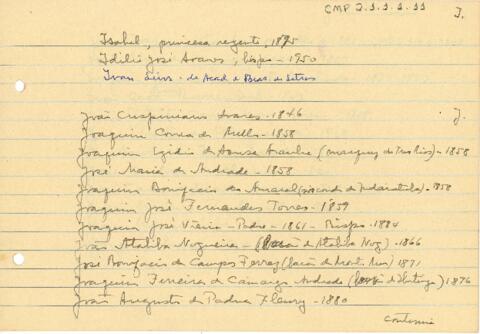 CMP 2.1.2.2.11
I.
Isabel, princesa regente, 1875
Idilio José Soares, bispo - 1950
Ivan Lins - da Acad. Bras. de Letras
J.
João Crispiniano Soares - 1846
Joaquim Correa de Mello - 1858
Joaquim Egidio de Sousa Aranha (marquez de Tres Rios) - 1858
José Maria de Andrade - 1858
Joaquim Bonifacio do Amaral (visconde de Indaiatuba) - 1858
Joaquim José Fernandes Torres - 1859
Joaquim José Vieira - Padre - 1861 - Bispo - 1884
João Ataliba Nogueira - (barão de Ataliba Nog.) - 1866
José Bonifacio de Campos Ferraz (barão de Monte Mor) 1871
Joaquim Ferreira de Camargo Andrade (barão de Ibitinga) 1876
João Augusto de Padua Fleury - 1880
continua